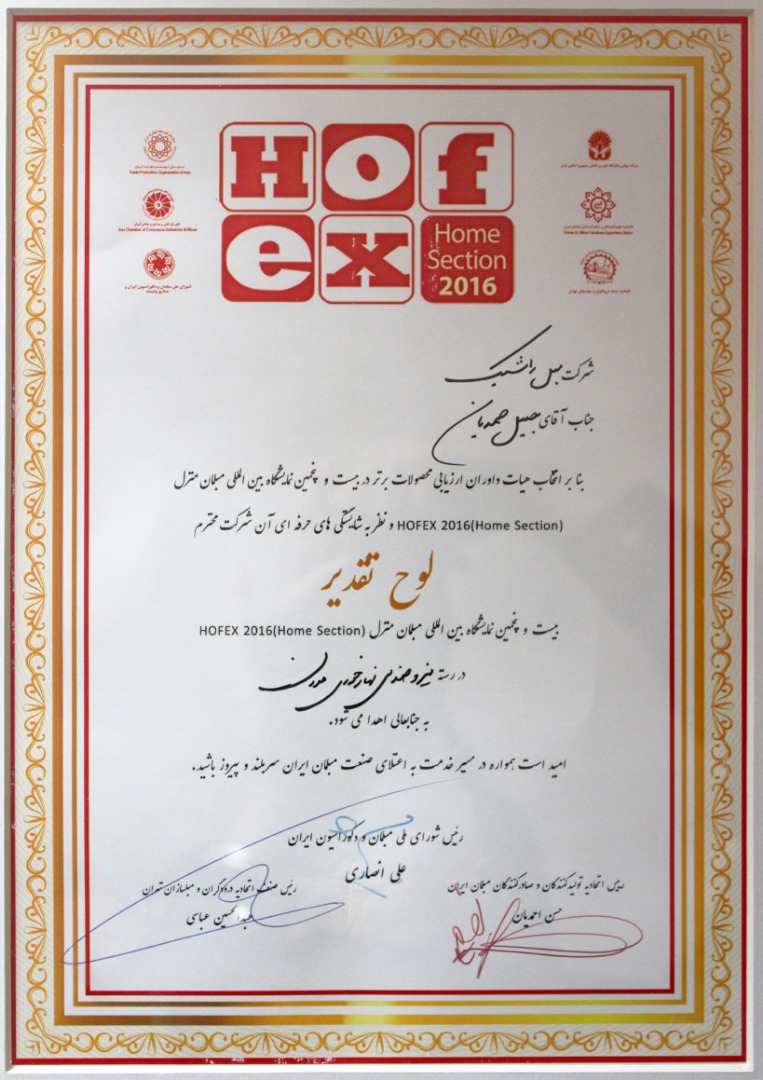 Hofex
Home
Section
2016
Trade Promotion Organization of Iran
Iran Chamber of Commerce, Industries & Mines
شورای ملی مبلمان و دکوراسیون ایران و
صنایع وابسته
شرکت مبل راشتیک
جناب آقای جمیل صمدیان
بنا بر انتخاب هیات داوران ارزیابی محصولات برتر در بیست و پنجمین نمایشگاه بین المللی مبلمان منزل
HOFEX 2016(Home Section) و نظر به شایستگی های حرفه ای آن شرکت محترم
لوح تقدیر
بیست و پنجمین نمایشگاه بین المللی مبلمان منزل HOFEX 2016(Home Section)
در رسته میز و صندلی نهارخوری مدرن
به جنابعالی اهدا می شود.
امید است همواره در مسیر خدمت به اعتلای صنعت مبلمان ایران سربلند و پیروز باشید.
رئیس شورای ملی مبلمان و دکوراسیون ایران
علی انصاری
رئیس اتحادیه تولیدکنندگان و صادرکنندگان مبلمان ایران
حسن احمدیان
رئیس صنف اتحادیه درودگران و مبلسازان تهران
عبدالحسین عباسی